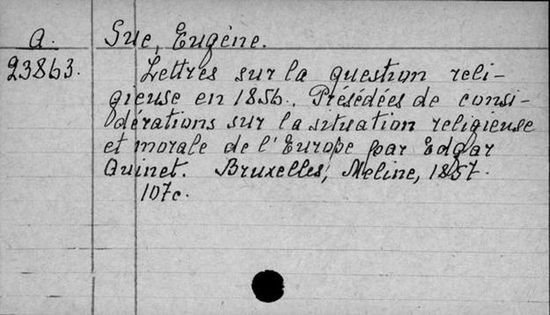 A. Sue, Eugène.
23863. Lettres sur la question reli-
gieuse en 1856. Présédées de consi-
dérations sur la situation religieuse
et morale de l'Europe par Edgar
Quinet. Bruxelles, Meline, 1857.
107c.